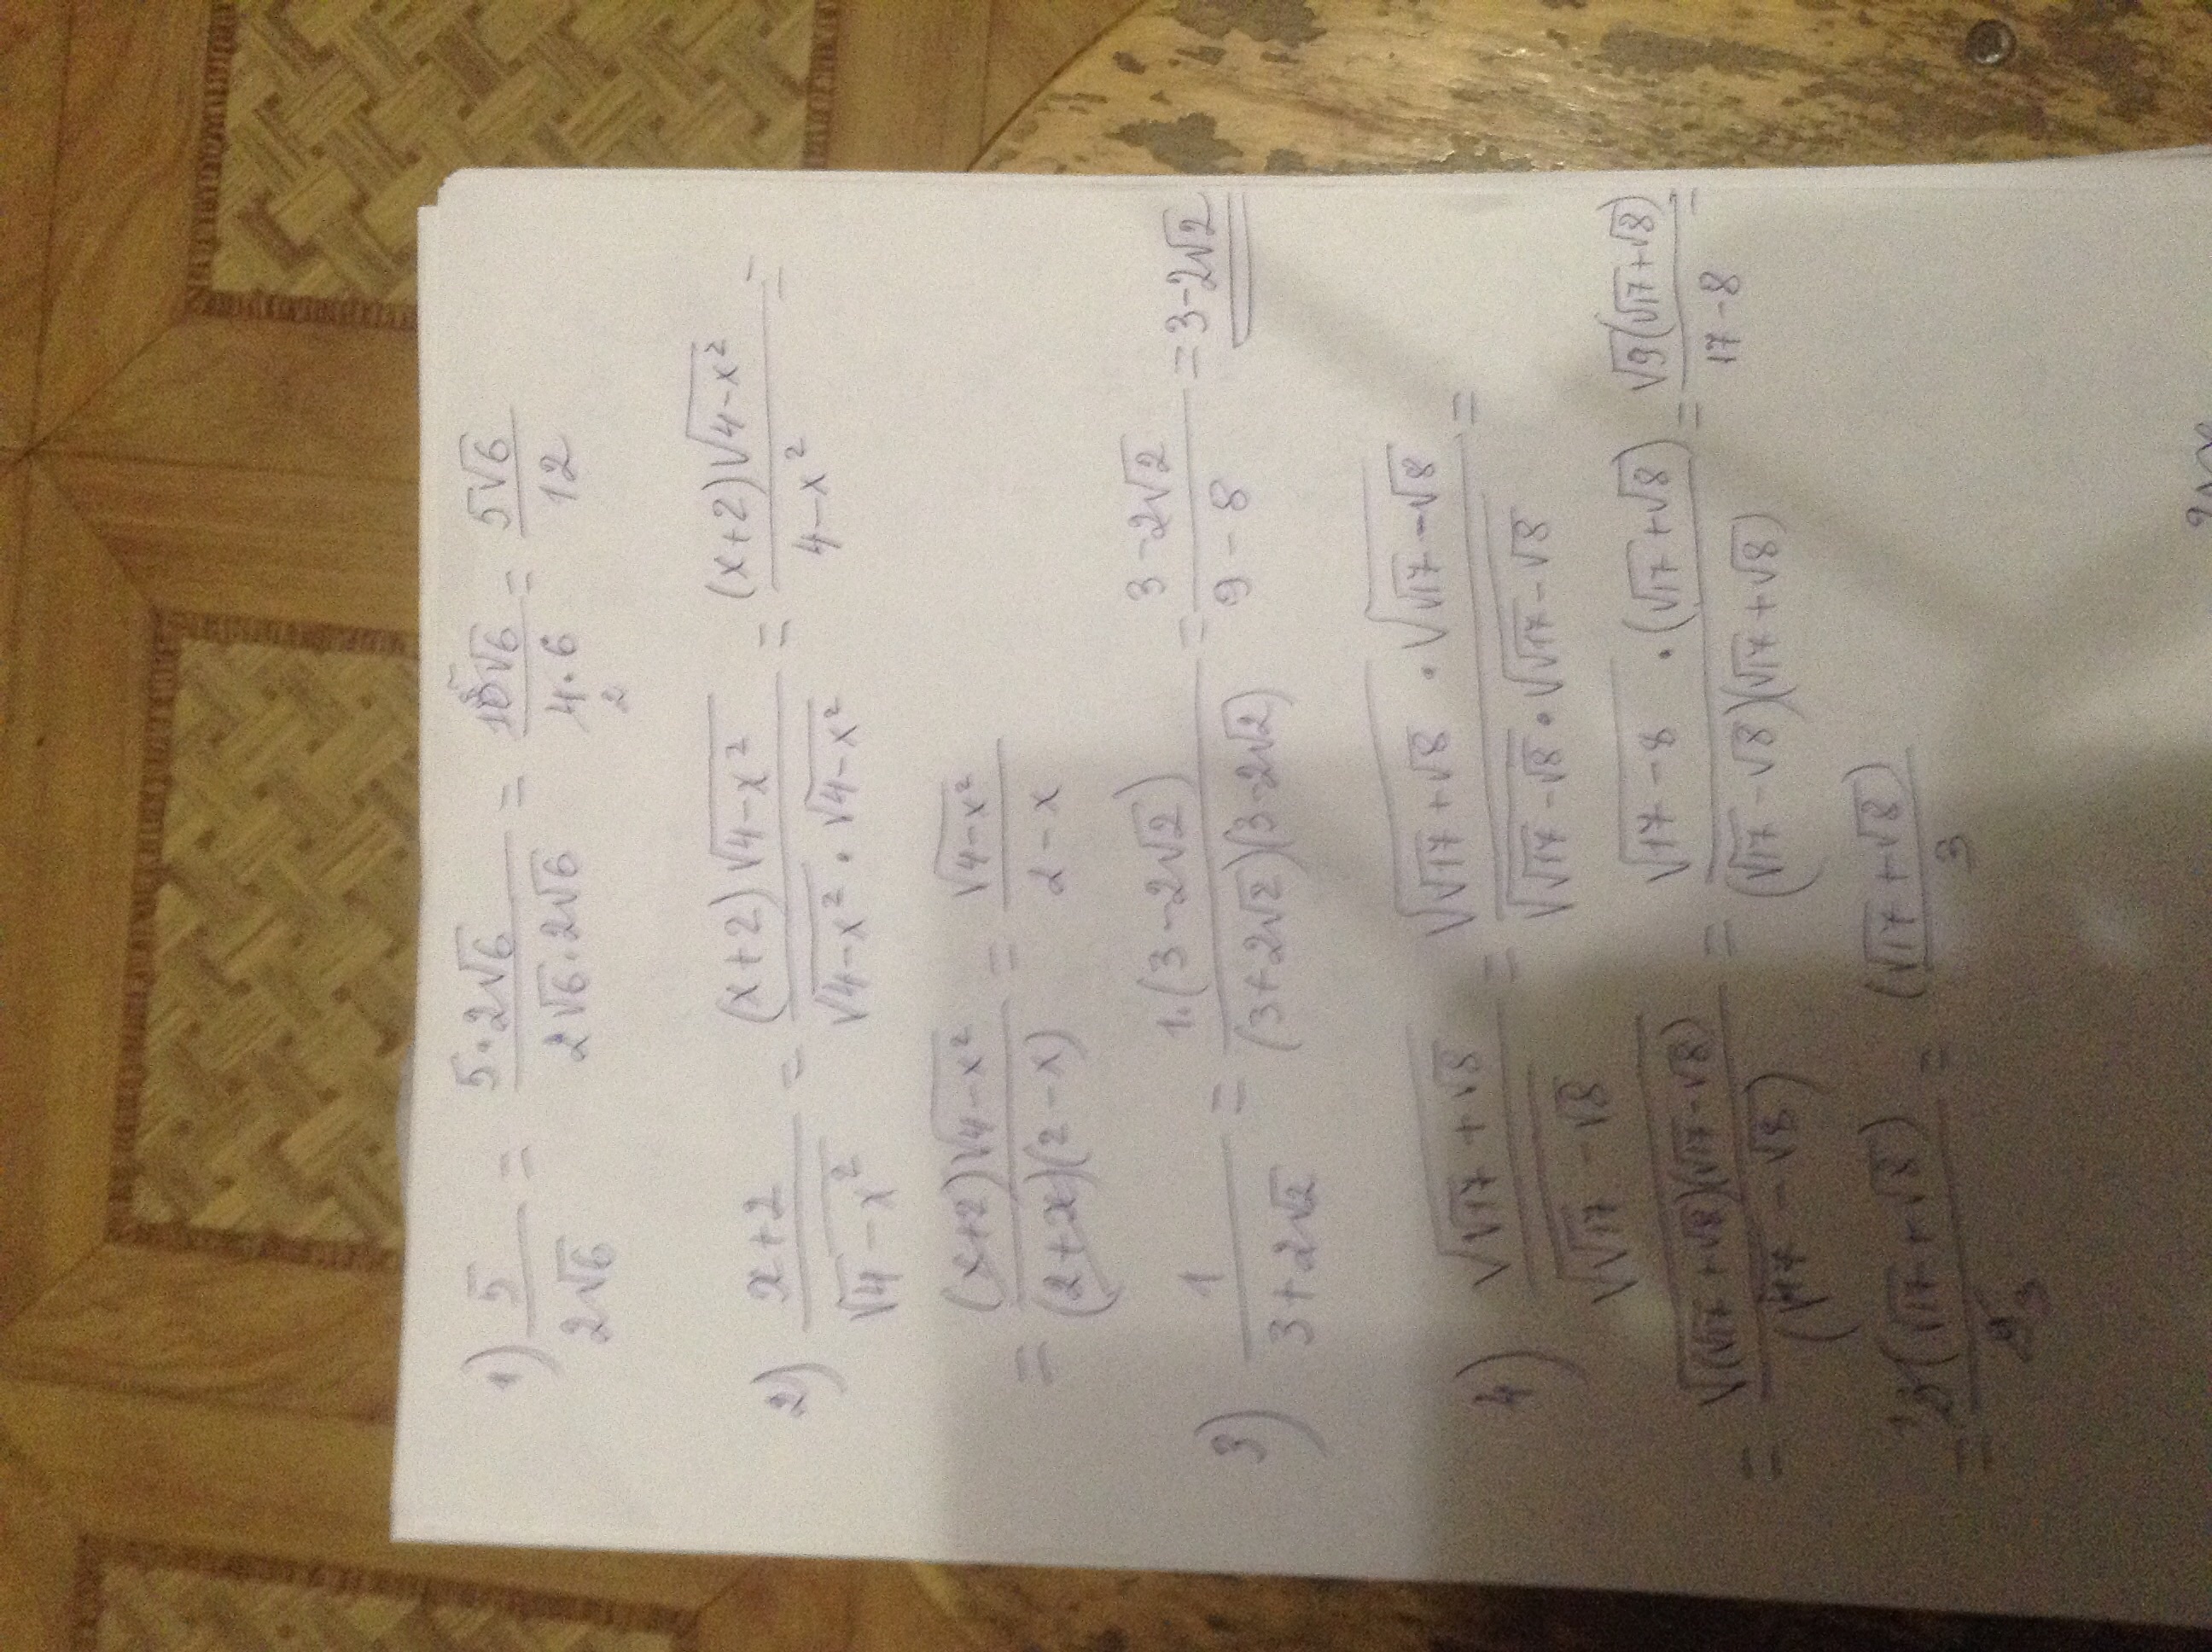 1) 5/(2√6) = (5·2√6)/(2√6·2√6) = (10√6)/(4·6) = (5√6)/12
2) (x+2)/√(4-x²) = ((x+2)√(4-x²))/(√(4-x²)·√(4-x²)) = ((x+2)√(4-x²))/(4-x²) =
= ((x+2)√(4-x²))/((2+x)(2-x)) = √(4-x²)/(2-x)
3) 1/(3+2√2) = (1·(3-2√2))/((3+2√2)(3-2√2)) = (3-2√2)/(9-8) = 3-2√2
4) √(√17+√8)/√(√17-√8) = (√(√17+√8)·√(√17-√8))/(√(√17-√8)·√(√17-√8)) =
= √((√17+√8)(√17-√8))/(√17-√8) = (√(17-8)·(√17+√8))/((√17-√8)(√17+√8)) = (√9(√17+√8))/(17-8) =
= (3(√17+√8))/9 = (√17+√8)/3